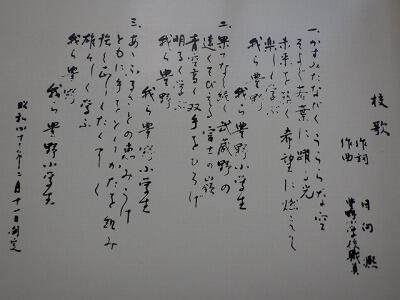 校歌
作詞 月河 
作曲 豊野小学校職員
一、かすみたなびく うららな空
そよぐ若葉に躍る光
未来を強く 希望に燃えて
楽しく学ぶ
我ら豊野 我ら豊野小学生
二、果てなく続く武蔵野の
遠くそびえる富士の嶺
青空高く双手をひろげ
明るく学ぶ
我ら豊野 我ら豊野小学生
三、あゝふるさとの恵みうけ
ともに手をとりかたを組み
強く正しくたくましく
雄々しく学ぶ
我ら豊野 我ら豊野小学生
昭和四十 年二月十一日制定